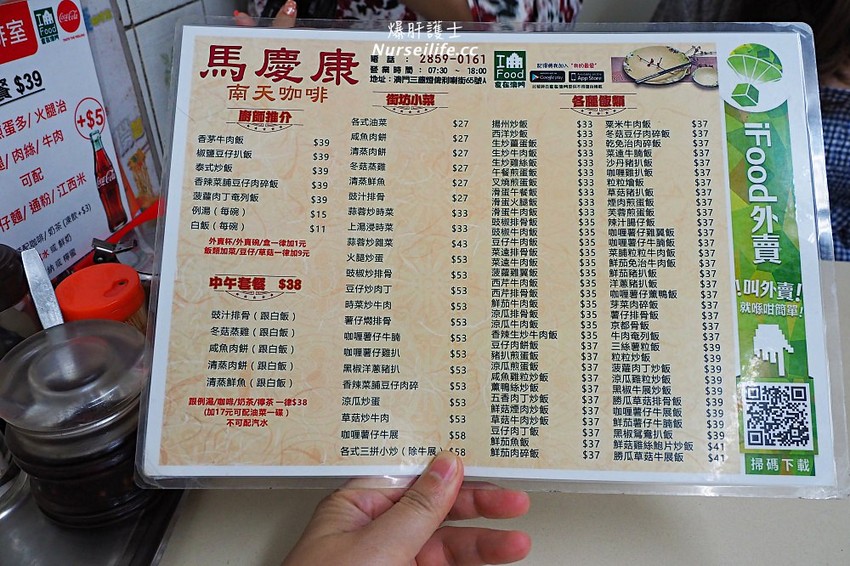 爆肝護士
Nurseilife.cc
馬慶康
南天咖啡
電話：2859-0161
營業時間：07:30 ~ 18:00
iFood
Google Play
App Store
廚師推介
香茅牛肉飯 $39
椒鹽豆仔扒飯 $39
泰式炒飯 $39
香辣菜脯豆仔肉碎飯 $39
菠蘿肉丁奄列飯 $39
例湯（每碗） $15
白飯（每碗） $11
外賣杯/外賣碗/盒一律加1元
飯類加菜/豆仔/草菇一律加9元
中午套餐 $38
豉汁排骨（跟白飯）
冬菇蒸雞（跟白飯）
咸魚肉餅（跟白飯）
清蒸肉餅（跟白飯）
清蒸鮮魚（跟白飯）
跟例湯/咖啡/奶茶/檸茶 一律$38
（加17元可配油菜一碟）
不可配汽水
街坊小菜
各式油菜 $27
咸魚肉餅 $27
清蒸肉餅 $27
冬菇蒸雞 $27
清蒸鮮魚 $27
豉汁排骨 $27
蒜蓉炒時菜 $33
上湯浸時菜 $33
蒜蓉炒雞菜 $43
火腿炒蛋 $53
豉椒炒排骨 $53
豆仔炒肉丁 $53
時菜炒牛肉 $53
薯仔燜排骨 $53
咖喱薯仔牛腩 $53
咖喱薯仔雞扒 $53
黑椒洋蔥豬扒 $53
香辣菜脯豆仔肉碎 $53
涼瓜炒蛋 $53
草菇炒牛肉 $53
咖喱薯仔牛展 $58
各式三拼小炒（除牛展） $58
各種飯類
揚州炒飯 $33
西洋炒飯 $33
生炒薑蛋飯 $33
生炒牛肉飯 $33
生炒雞絲飯 $33
午餐煎蛋飯 $33
叉燒煎蛋飯 $33
午餐滑蛋飯 $33
滑蛋火腿飯 $33
滑蛋牛肉飯 $33
豉椒排骨飯 $35
豉椒牛肉飯 $35
豆仔牛肉飯 $35
菜遠排骨飯 $35
菜遠牛肉飯 $35
菠蘿雞翼飯 $35
西芹牛肉飯 $35
西芹排骨飯 $35
鮮茄牛肉飯 $35
涼瓜排骨飯 $35
涼瓜牛肉飯 $35
香辣生炒牛肉飯 $35
豆仔肉餅飯 $35
豬扒煎蛋飯 $35
涼瓜煎蛋飯 $35
咸魚雞粒炒飯 $37
薰鴨絲炒飯 $37
五香肉丁炒飯 $37
鮮茄煙肉炒飯 $37
草菇牛肉炒飯 $37
豆仔肉丁飯 $37
鮮茄魚飯 $37
鮮茄肉碎飯 $37
粟米牛肉飯 $37
冬菇豆仔肉碎飯 $37
乾免治肉碎飯 $37
菜遠牛腩飯 $37
沙丹豬扒飯 $37
咖喱雞扒飯 $37
粒粒燴飯 $37
草菇豬扒飯 $37
煙肉煎蛋飯 $37
芙蓉煎蛋飯 $37
辣汁腸仔飯 $37
咖喱薯仔雞翼飯 $37
咖喱薯仔牛腩飯 $37
菜脯粒粒牛肉飯 $37
鮮茄免治牛肉飯 $37
鮮茄豬扒飯 $37
洋蔥豬扒飯 $37
咖喱薯仔薰鴨飯 $37
芽菜肉碎飯 $37
薯仔排骨飯 $37
京都骨飯 $37
牛肉奄列飯 $37
三絲薯粒飯 $39
粒粒炒飯 $39
菠蘿肉丁炒飯 $39
涼瓜雞粒炒飯 $39
黑椒牛展炒飯 $39
勝瓜草菇排骨飯 $39
咖喱薯仔牛展飯 $39
鮮茄薯仔牛腩飯 $39
黑椒鴛鴦扒飯 $39
鮮菇雞絲鮑片炒飯 $41
勝瓜草菇牛展飯 $41
iFood外賣
!叫外賣!
就喺咁簡單!
掃碼下載
$39
+$5
Coca-Cola
可配